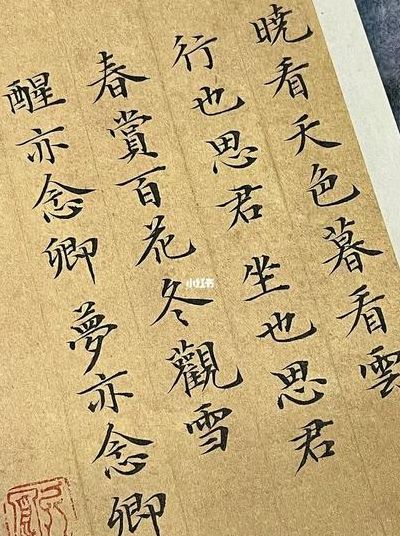 曉看天色暮看雲
行也思君 坐也思君
春賞百花冬觀雪
醒亦念卿 夢亦念卿
小红书